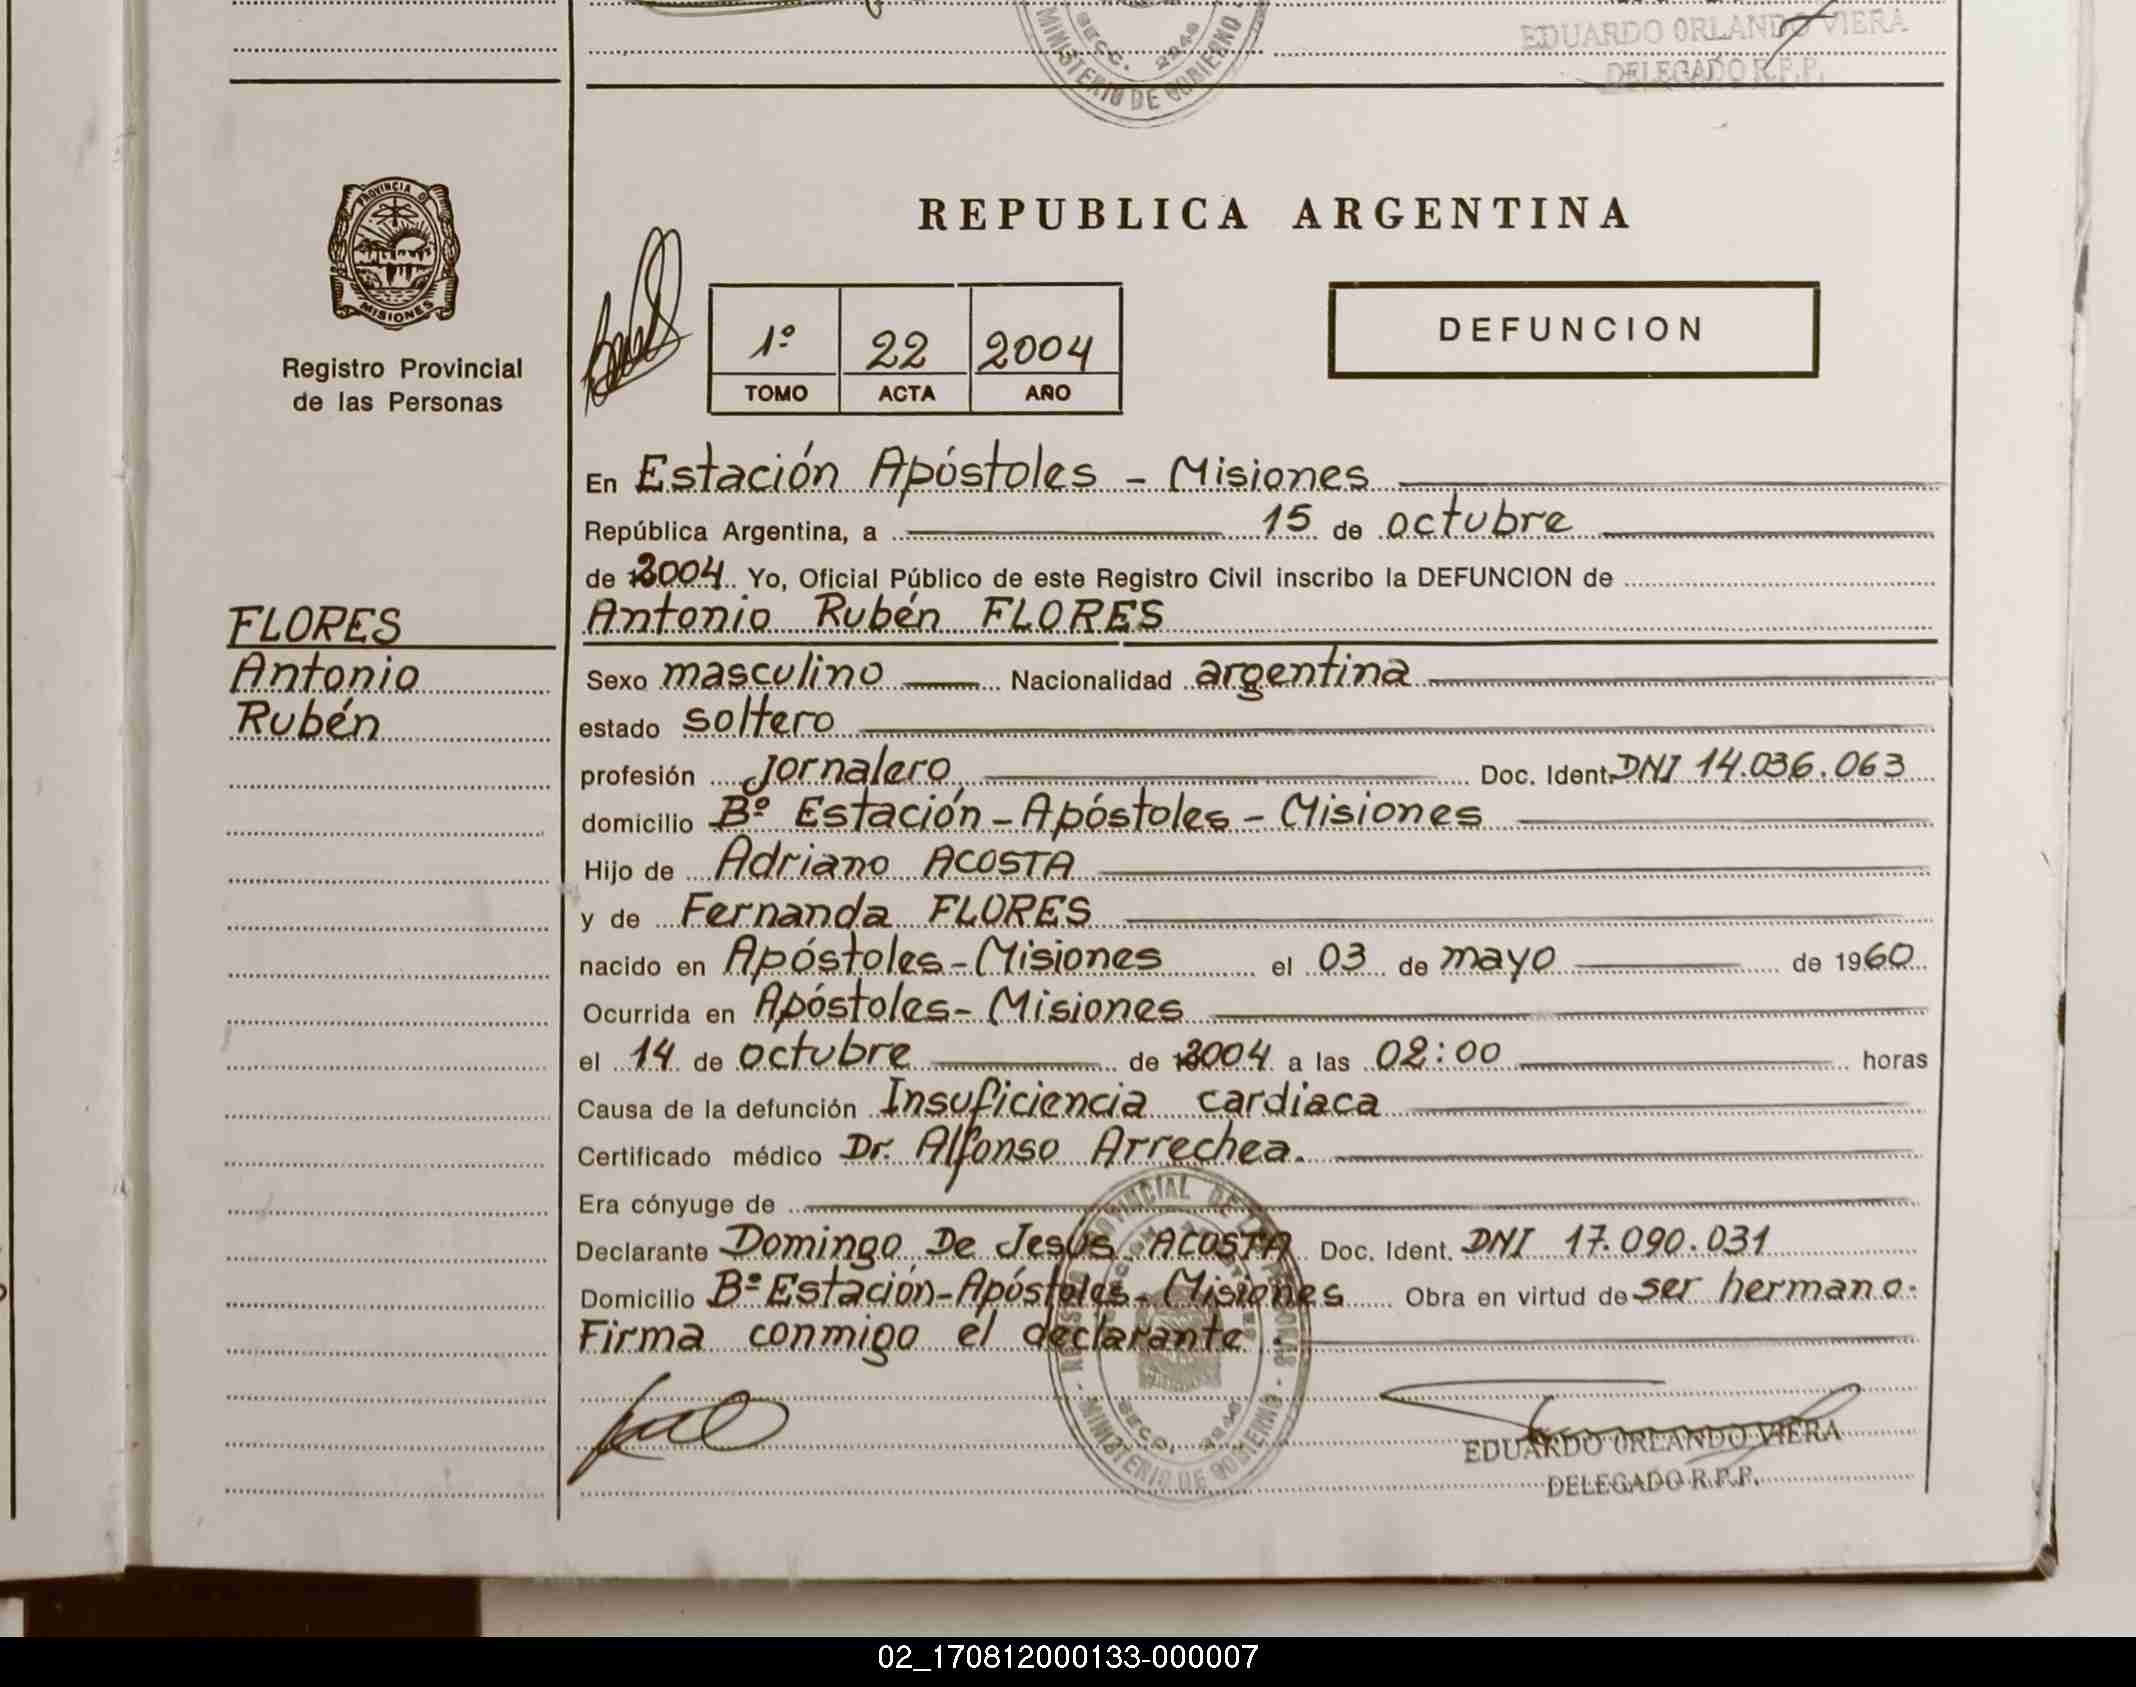 EDUARDO ORLANDO VIERA
DELEGADO R.P.P.
SECC. 2246
MINISTERIO DE GOBIERNO
PROVINCIA DE
MISIONES
Registro Provincial
de las Personas
REPUBLICA ARGENTINA
1º 22 2004
TOMO ACTA AÑO
DEFUNCION
En Estación Apóstoles - Misiones
República Argentina, a 15 de octubre
de 2004 Yo, Oficial Público de este Registro Civil inscribo la DEFUNCION de
Antonio Rubén FLORES
FLORES
Antonio
Rubén
Sexo masculino Nacionalidad argentina
estado soltero
profesión Jornalero Doc. Ident. DNI 14.036.063
domicilio Bº Estación - Apóstoles - Misiones
Hijo de Adriano ACOSTA
y de Fernanda FLORES
nacido en Apóstoles - Misiones el 03 de mayo de 1960
Ocurrida en Apóstoles - Misiones
el 14 de octubre de 2004 a las 02:00 horas
Causa de la defunción Insuficiencia cardiaca
Certificado médico Dr. Alfonso Arrechea.
Era cónyuge de
Declarante Domingo De Jesús ACOSTA Doc. Ident. DNI 17.090.031
Domicilio Bº Estación - Apóstoles - Misiones Obra en virtud de ser hermano.
Firma conmigo el declarante.
MINISTERIO DE GOBIERNO
EDUARDO ORLANDO VIERA
DELEGADO R.P.P.
02_170812000133-000007